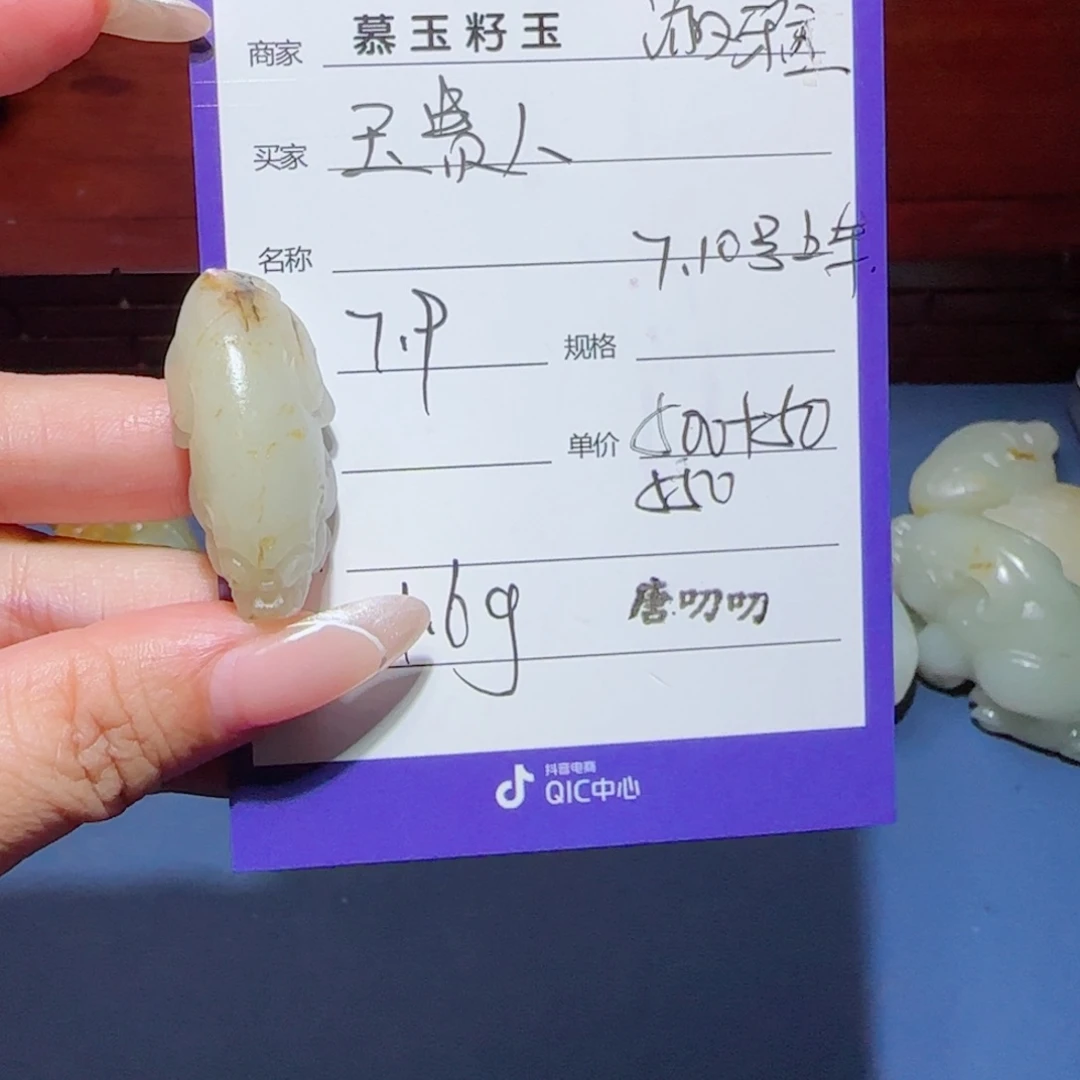 商家 慕玉籽玉
买家 王费人
名称
7.10号
7.9 规格
单价 500+50
550
.6g 唐叨叨
抖音电商
QIC中心